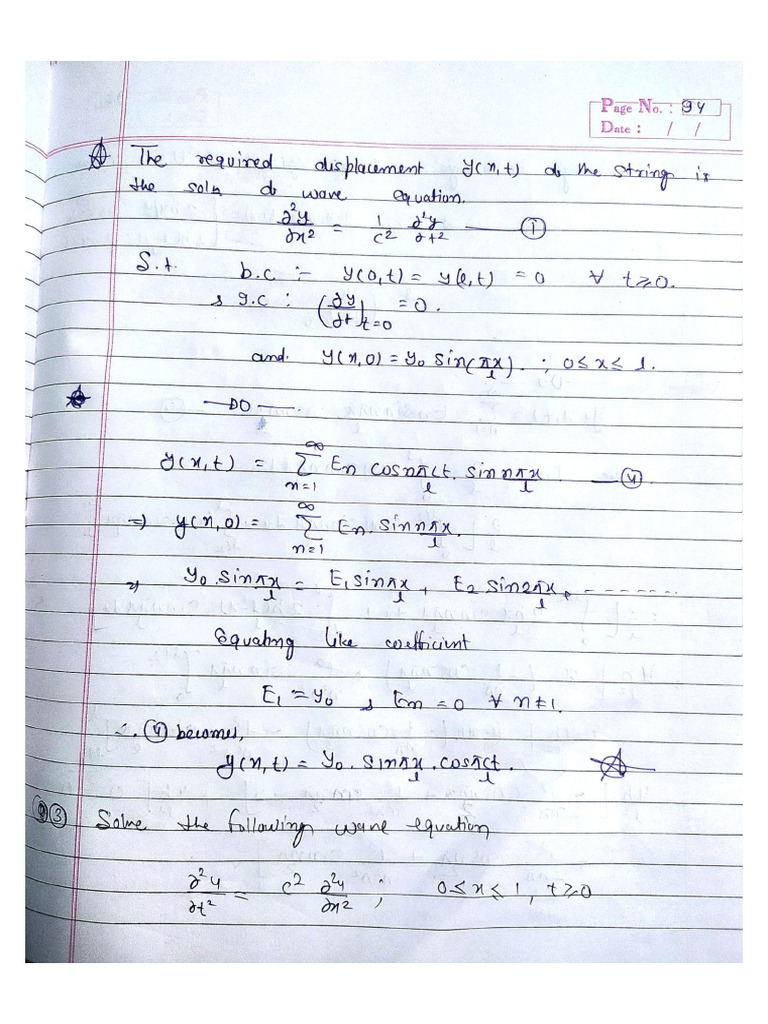 Page No. : 94
Date : / /
The required displacement y(x,t) of the string is
the soln of wave equation.
∂²y/∂x² = 1/c² ∂²y/∂t² —— ①
S.t. b.c :- y(0,t) = y(l,t) = 0 ∀ t≥0.
& I.C : (∂y/∂t)t=0 = 0.
and. y(x,0) = y₀ sin(πx/l). ; 0≤x≤l.
— DO —
y(x,t) = ∞ Σ n=1 En cos nπct/l . sin nπx/l —— ④
⇒ y(x,0) = ∞ Σ n=1 En. sin nπx/l.
⇒ y₀. sin πx/l = E₁ sin πx/l + E₂ sin 2πx/l + -------
Equating like coefficient
E₁ = y₀ & En = 0 ∀ n≠1.
∴ ④ becomes,
y(x,t) = y₀. sin πx/l . cos πct/l.
③ Solve the following wave equation
∂²u/∂t² = c² ∂²u/∂x² ; 0≤x≤1, t≥0